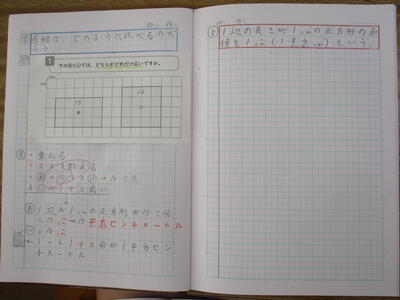 10：15：
面積は、どのようにくらべるのだろう。
1 下のあといでは、どちらがどれだけ広いですか。
15
16
・重ねる
・マスを数える
1辺が1cmの正方形が15こ分
=15㎠→15平方センチメートル
=16㎠
ノート1マス分が1平方センチメートル
10：15：
1辺の長さが1cmの正方形の面積を1㎠(1平方cm)という。